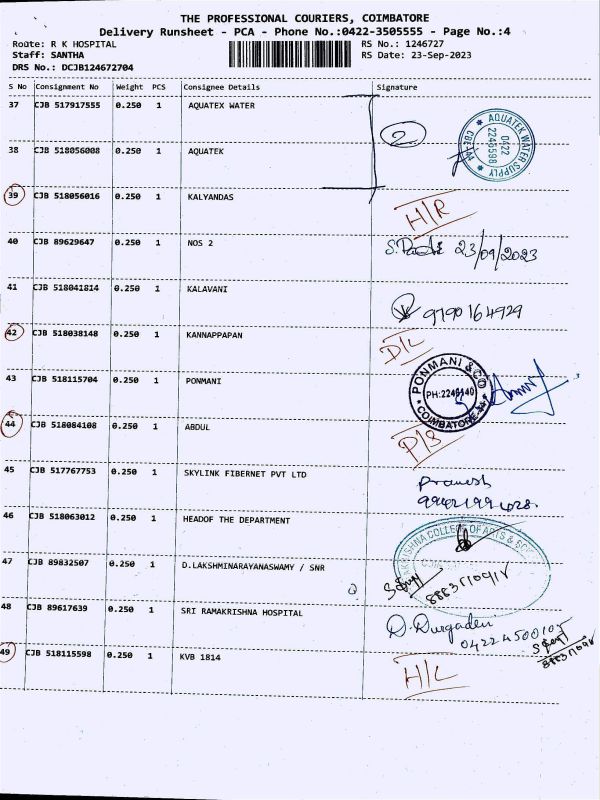 THE PROFESSIONAL COURIERS, COIMBATORE
Delivery Runsheet - PCA - Phone No.:0422-3505555 - Page No.:4
Route: R K HOSPITAL RS No.: 1246727
Staff: SANTHA RS Date: 23-Sep-2023
DRS No.: DCJB124672704
S No Consignment No Weight PCS Consignee Details Signature
37 CJB 517917555 0.250 1 AQUATEX WATER
2
AQUATEK WATER SUPPLY
0422
2246598
CBE-44
38 CJB 518056008 0.250 1 AQUATEK
39 CJB 518056016 0.250 1 KALYANDAS H/R
40 CJB 89629647 0.250 1 NOS 2 23/09/2023
41 CJB 518041814 0.250 1 KALAVANI 9790164929
42 CJB 518038148 0.250 1 KANNAPPAPAN D/L
43 CJB 518115704 0.250 1 PONMANI
PONMANI & CO
COIMBATORE
44 CJB 518084108 0.250 1 ABDUL P/S
45 CJB 517767753 0.250 1 SKYLINK FIBERNET PVT LTD Pramesh
46 CJB 518063012 0.250 1 HEADOF THE DEPARTMENT
COLLEGE OF ARTS &
47 CJB 89832507 0.250 1 D.LAKSHMINARAYANASWAMY / SNR
48 CJB 89617639 0.250 1 SRI RAMAKRISHNA HOSPITAL
49 CJB 518115598 0.250 1 KVB 1814 H/L